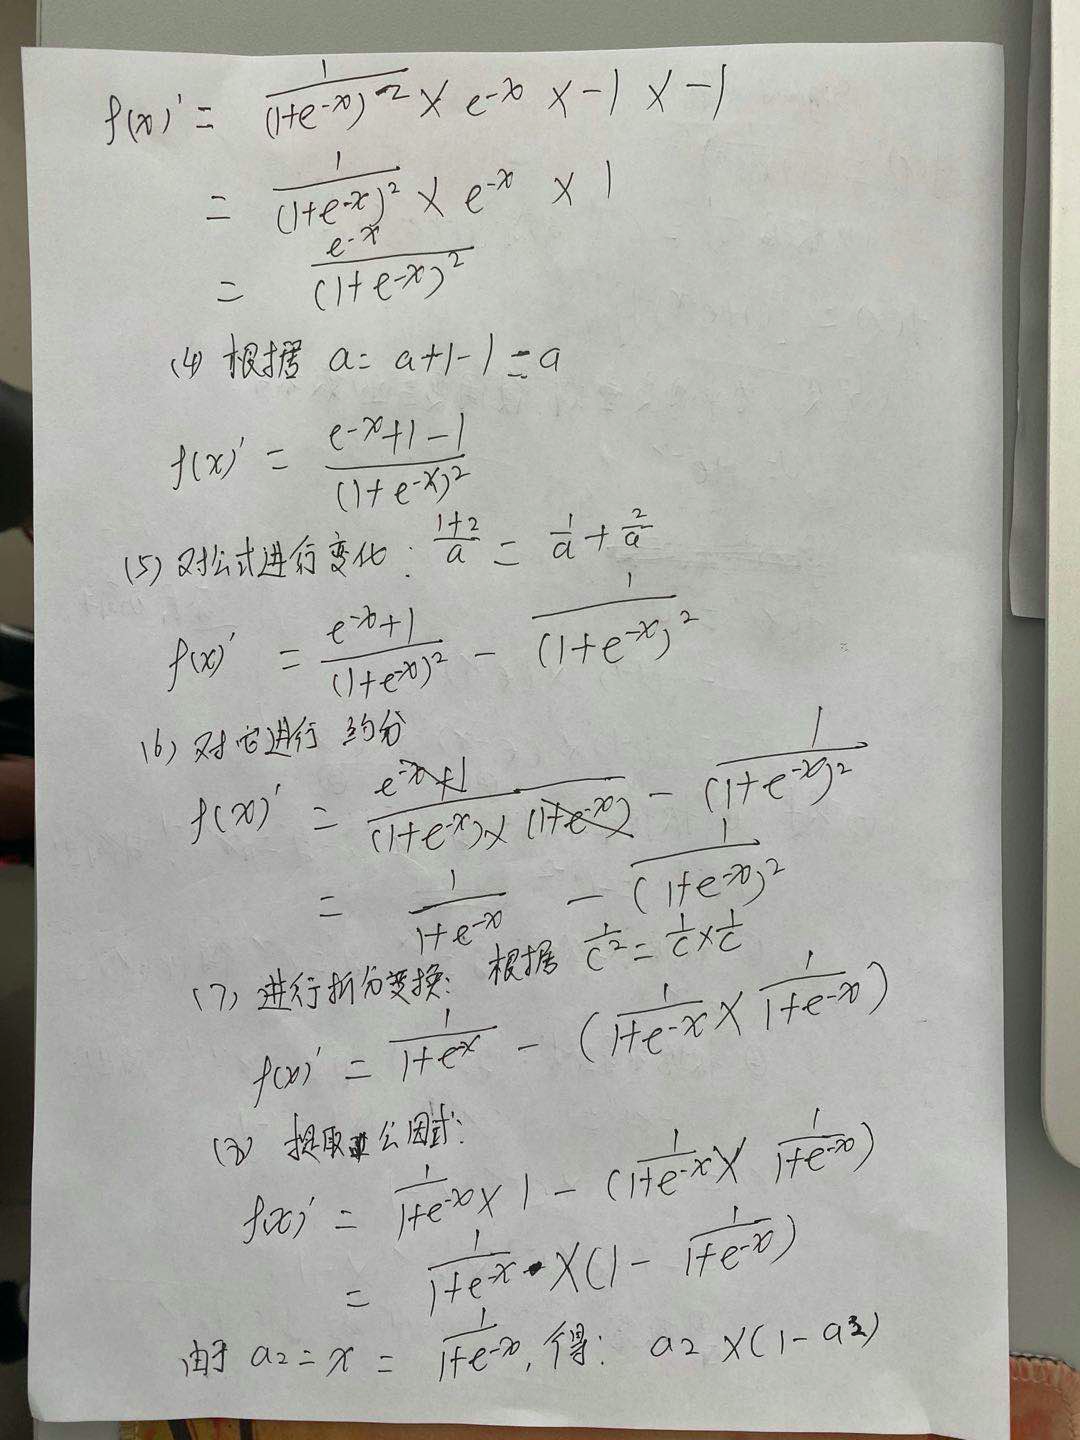 f(x)' = 1/(1+e^-x)^2 × e^-x × -1 × -1
= 1/(1+e^-x)^2 × e^-x × 1
= e^-x/(1+e^-x)^2
(4) 根据 a = a+1-1 = a
f(x)' = (e^-x+1-1)/(1+e^-x)^2
(5) 对公式进行变化: (1+2)/a = 1/a + 2/a
f(x)' = (e^-x+1)/(1+e^-x)^2 - 1/(1+e^-x)^2
(6) 对它进行 约分
f(x)' = (e^-x+1)/((1+e^-x)×(1+e^-x)) - 1/(1+e^-x)^2
= 1/(1+e^-x) - 1/(1+e^-x)^2
(7) 进行拆分变换: 根据 1/c^2 = 1/c × 1/c
f(x)' = 1/(1+e^x) - (1/(1+e^-x) × 1/(1+e^-x))
(8) 提取 公因式:
f(x)' = 1/(1+e^-x) × 1 - (1/(1+e^-x) × 1/(1+e^-x))
= 1/(1+e^-x) × (1 - 1/(1+e^-x))
由于 a2 = x = 1/(1+e^-x), 得: a2 × (1-a2)